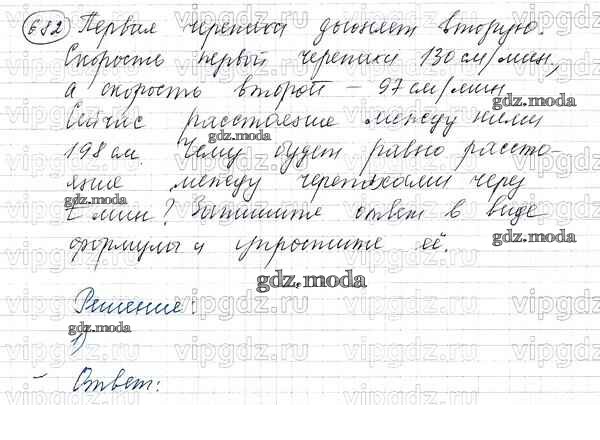 682 Первая черепаха догоняет вторую.
Скорость первой черепахи 130 см/мин,
а скорость второй – 97 см/мин.
gdz.moda
Сейчас расстояние между ними
gdz.moda
198 см. Чему будет равно рассто-
яние между черепахами через
gdz.moda
t мин? Запишите ответ в виде
gdz.moda
формулы и упростите её.
gdz.moda
Решение:
gdz.moda
1)
Ответ:
vipgdz.ru